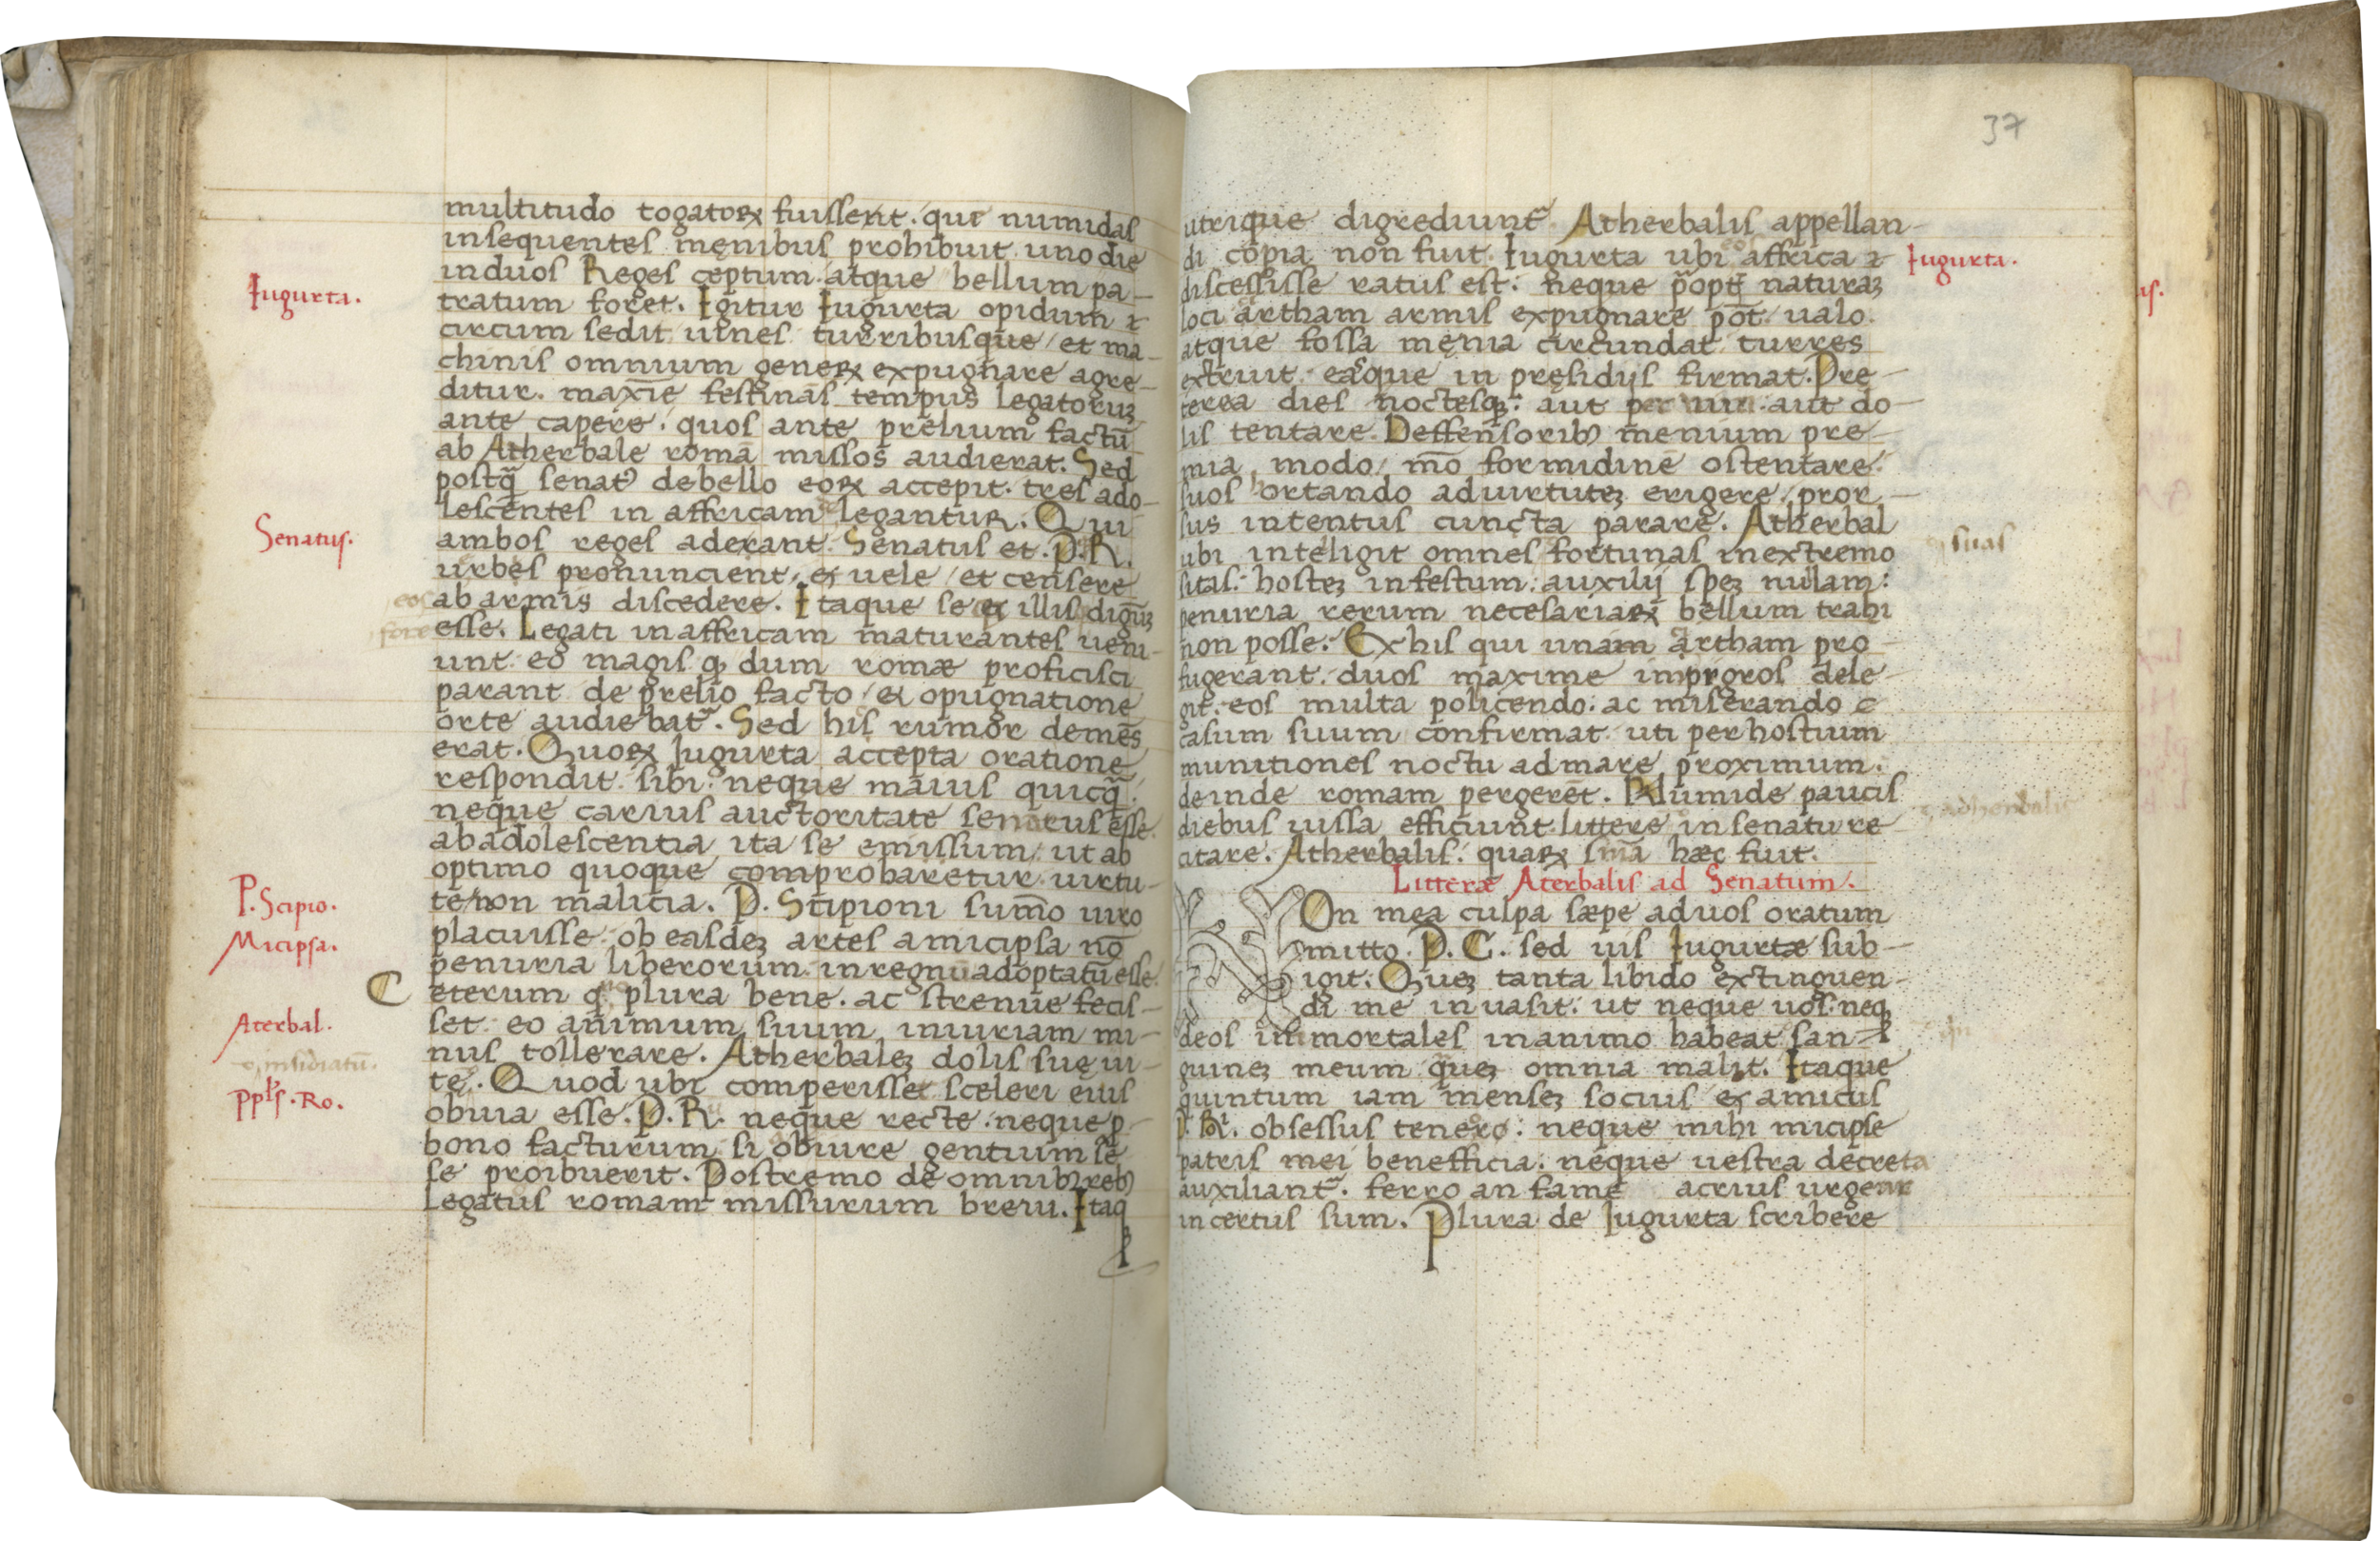 multitudo togatoꝝ fuissent. qui numidas
insequentes męnibus prohibuit. uno die
in duos Reges ceptum. atque bellum pa-
Iugurta.
tratum foret. Igitur Iugurta opidum
circum sedit uineis turribusque / et ma-
chinis omnium generꝝ expugnare agre-
ditur. maxīe festināſ tempus legatoruꝫ
ante capere. quos ante prelium factū
ab Atherbale romā missos audierat. Sed
postq̄ senatꝰ de bello eoꝝ accepit. tres ado-
lescentes in affricam legantur. Qui
Senatus.
ambos reges aderant. Senatus et. P. R.
urbes pronuncient, & uele / et censere
eos
ab armis discedere. Itaque se & illis dignuꝫ
fore
esse. Legati in affricam maturantes ueni-
unt. eo magis ꝙ dum romæ proficisci
parant de prelio facto / & opugnatione
orte audiebat᷑. Sed his rumor demēs
erat. Quoꝝ Iugurta accepta oratione
respondit. sibi. neque maius quicq̄.
neque carius auctoritate senatus esse.
ab adolescentia ita se emissum / ut ab
optimo quoque comprobaretur. uirtu-
P. Scipio.
te / non malicia. P. Scipioni sum̄o uiro
Micipsa.
placuisse. ob easdeꝫ artes a micipsa nō
penuria liberorum. in regnū adoptatū esse.
C eterum ꝙ plura bene. ac strenue fecis-
Aterbal.
set. eo animum suum iniuriam mi-
nus tollerare. Atherbaleꝫ dolis suę ui-
insidiatū.
te. Quod ubi comperisset sceleri eius
Ppl̄s. Ro.
obuia esse. P. R. neque recte. neque p
bono facturum si ob iure gentium se
se proibuerit. Postremo de omnibꝰ rebꝰ
legatus romam missurum breui. Itaq
37
utrique digrediunt᷑ Atherbalis appellan-
di copia non fuit. Iugurta ubi affrica
Iugurta.
discessisse ratus est. neque p̄opt̄ naturaꝫ
loci artham armis expugnare pōt. ualo
atque fossa męnia circundat. turres
extruit. easque in pręsidijs firmat. Pre-
terea dies noctesqꝫ. aut per uim. aut do-
lis tentare. Deffensoribꝰ menium pre-
mia modo / mō formidinē ostentare.
suos hortando ad uirtuteꝫ erigere. pror-
sus intentus cuncta parare. Atherbal
ubi inteligit omnes fortunas in extremo
suas
sitas. hosteꝫ infestum. auxilij speꝫ nullam.
penuria rerum necesariaꝝ bellum trahi
non posse. Ex his qui unam artham pro-
fugerant. duos maxime impigros dele-
git. eos multa policendo. ac miserando
casum suum confirmat. uti per hostium
munitiones noctu ad mare proximum.
deinde romam pergerēt. Numide paucis
diebus iussa efficiunt. littere in senatu re-
citare. Atherbalis. quaꝝ sn̄ia hæc fuit.
Litteræ Aterbalis ad Senatum.
NOn mea culpa sæpe ad uos oratum
mitto. P. C. sed uis Iugurtæ sub-
igit. Queꝫ tanta libido extinguen-
di me inuasit. ut neque uos. neqꝫ
deos inmortales in animo habeat. san-
guineꝫ meum queꝫ omnia malit. Itaque
quintum iam menseꝫ socius & amicus
P. R. obsessus teneor. neque mihi micipse
patris mei benefficia. neque uestra decreta
auxiliant᷑. ferro an fame acrius urgear
incertus sum. Plura de Iugurta scribere